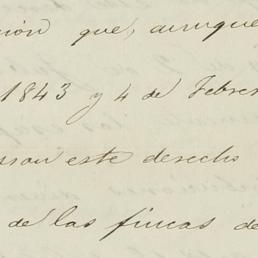 ción que, aunque
1843 y 4 de Febre
este derecho
de las fincas de